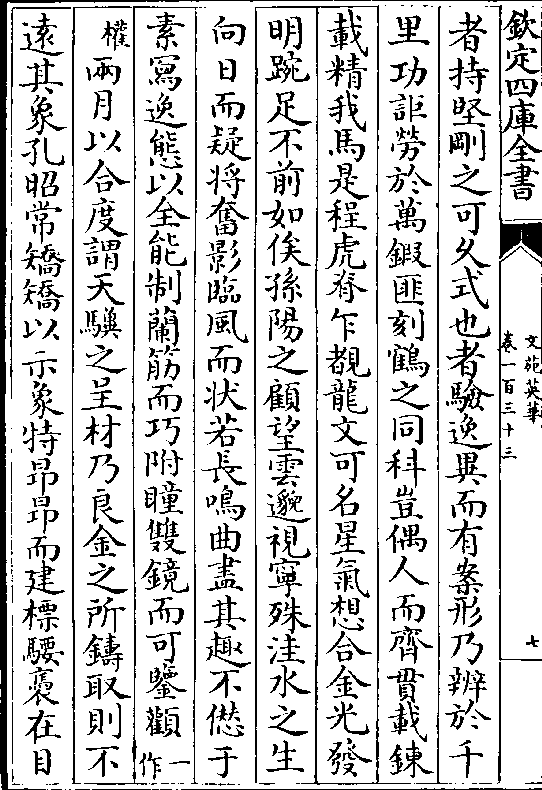 欽定四庫全書
文苑英華
卷一百三十三
七
者持堅剛之可久式也者驗逸異而有案形乃辨於千
里功詎勞於萬鍜匪刻鶴之同科豈偶人而齊貫載鍊
載精我馬是程虎脊乍覩龍文可名星氣想合金光發
明踠足不前如俟孫陽之顧望雲邈視寧殊洼水之生
向日而疑將奮影臨風而状若長鳴曲盡其趣不㦬于
素冩逸態以全能制蘭筋而巧附瞳雙鏡而可鑒顴一作
權兩月以合度謂天驥之呈材乃良金之所鑄取則不
逺其象孔昭常矯矯以示象特昂昂而建標騕褭在目